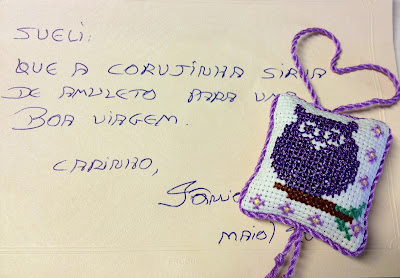 SUELI:
QUE A CORUJINHA SIRVA
DE AMULETO PARA UMA
BOA VIAGEM.
CARINHO,
MAIO/